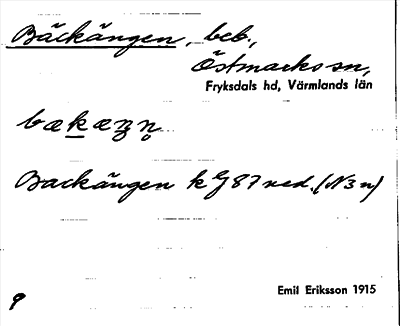 Bäckängen, beb.,
Östmarks sn,
Fryksdals hd, Värmlands län
Backängen k G 87 ned. (N3n)
Emil Eriksson 1915
9